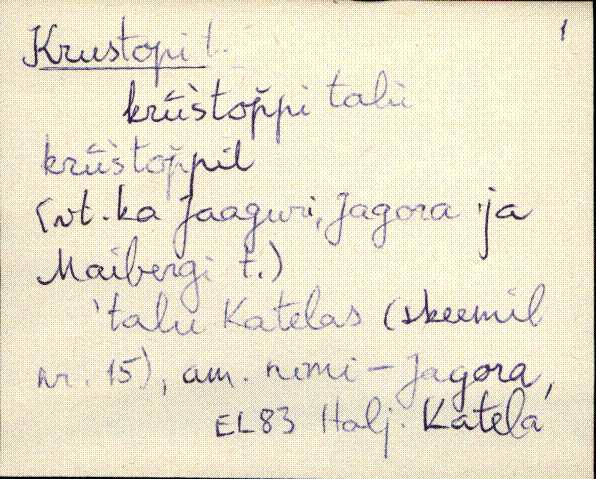 Krustopi t. 1
krṻ̀stop̆pi talu
krṻ̀stop̆pil
(vt. ka Jaaguri, Jagora ja
Maibergi t.)
'talu Katelas (skeemil
nr. 15), am. nimi – Jagora,
EL83 Halj. Katela